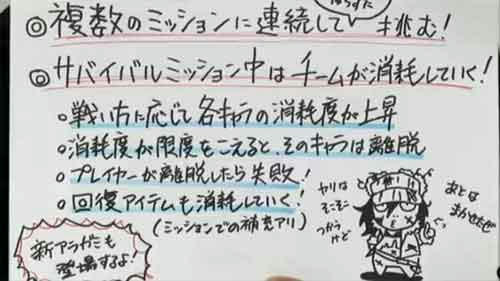 ◎複数のミッションに連続して挑む!
◎サバイバルミッション中はチームが消耗していく!
○戦い方に応じて各キャラの消耗度が上昇
○消耗度が限度をこえると、そのキャラは離脱
○プレイヤーが離脱したら失敗!
○回復アイテムも消耗していく!
(ミッションでの補充アリ)
新アラガミも
登場するよ!
ヤツは
そこそこ
つかうけど
あとは
まかせたぜ